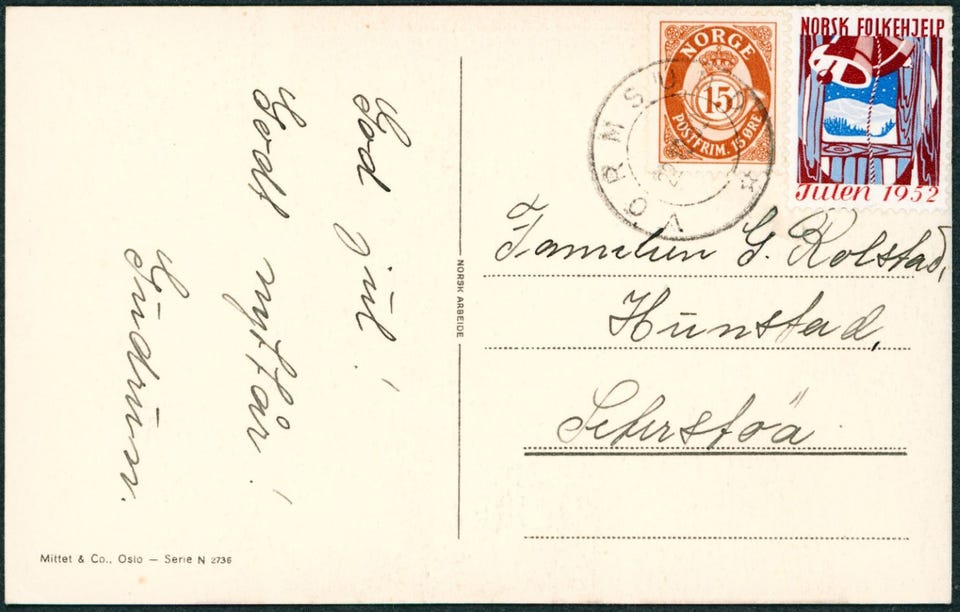 God jul!
Godt nytt år!
Gudrun.
Mittet & Co., Oslo — Serie N 2736
NORSK ARBEIDE
NORGE
15
POSTFRIM. 15 ØRE
NORSK FOLKEHJELP
Julen 1952
VORMSUND
Familien G. Rolstad,
Hunstad,
Seterstøa